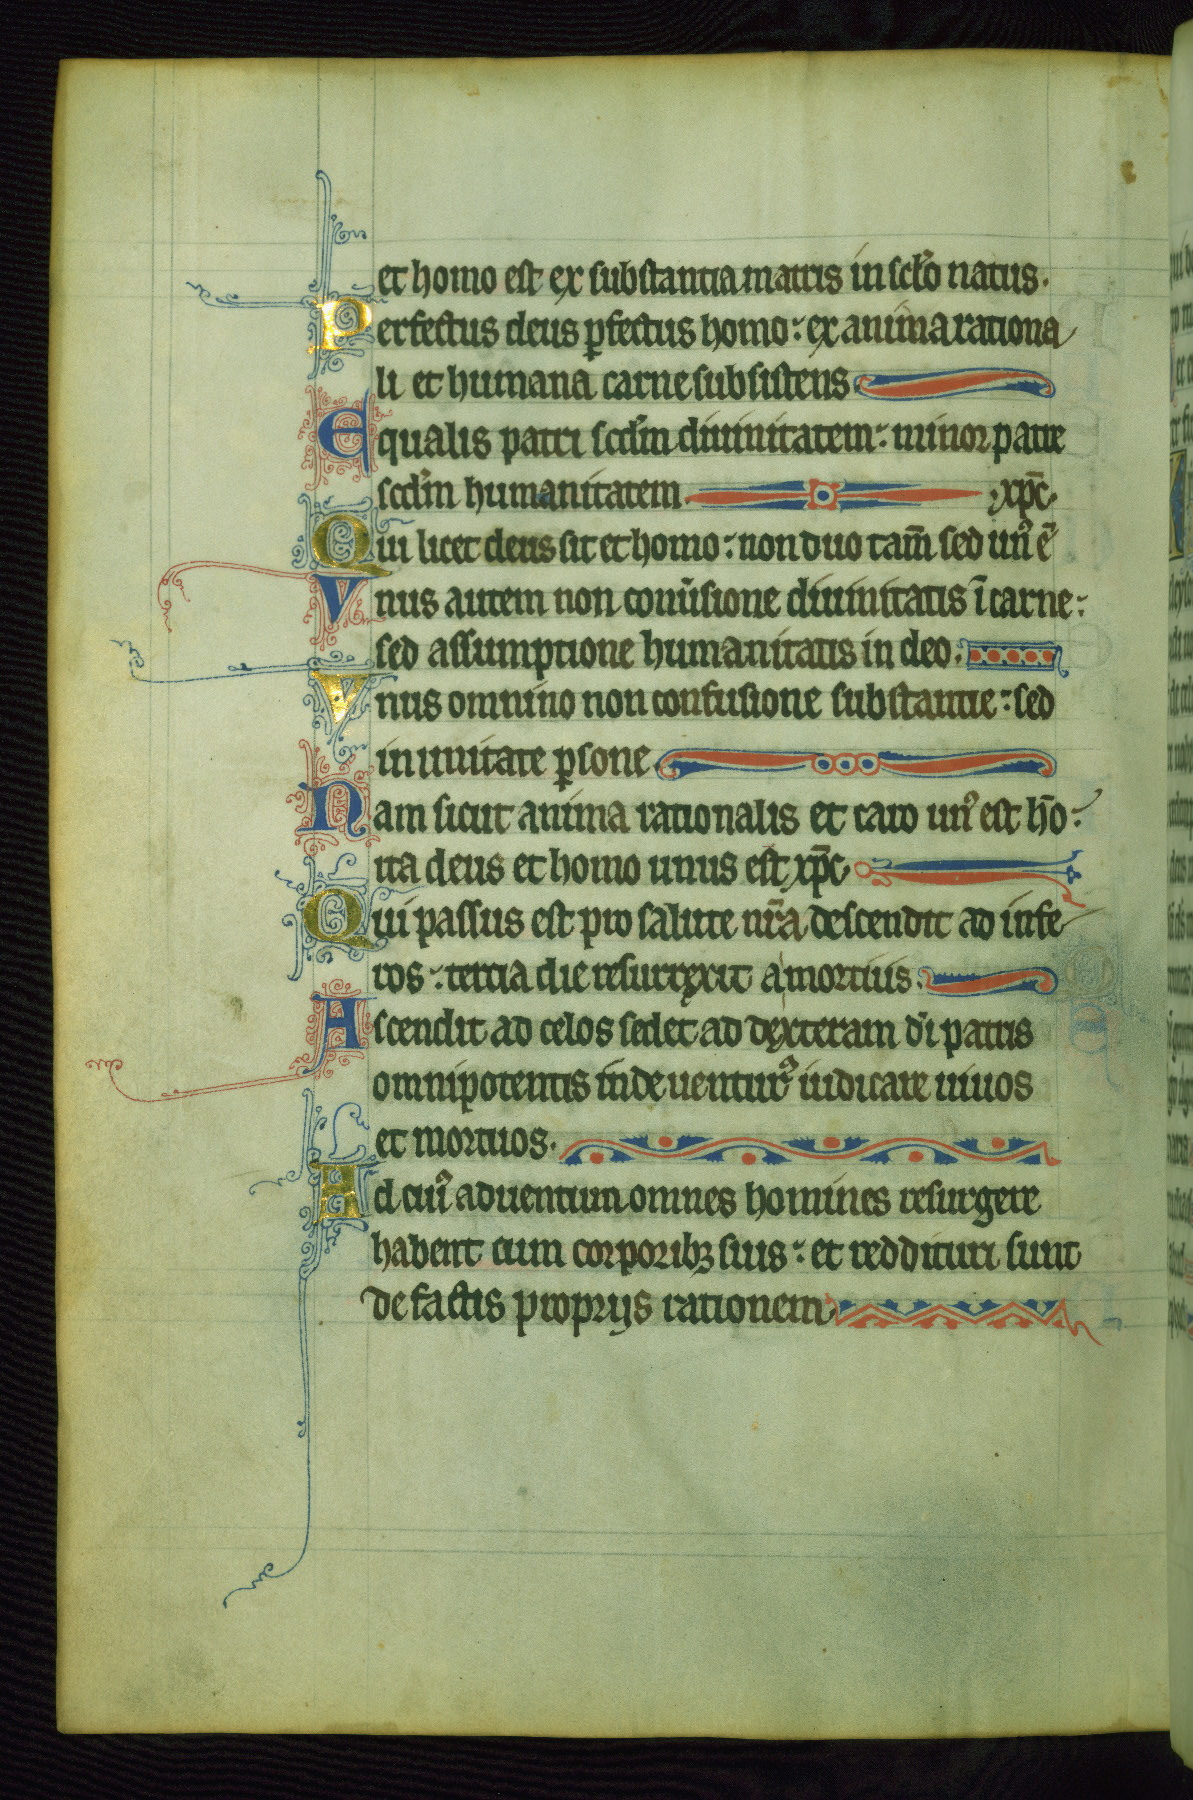 et homo est ex substantia matris in sclo natus.
Perfectus deus pfectus homo: ex anima rationa
li et humana carne subsistens.
Equalis patri scdm diuinitatem: minor patre
scdm humanitatem. xpc.
Qui licet deus sit et homo: non duo tam̄ sed un⁹ ē
Vnus autem non conuersione diuinitatis ī carne:
sed assumptione humanitatis in deo.
Vnus omnino non confusione substantie: sed
in unitate psone.
Nam sicut anima rationalis et caro un⁹ est hō:
ita deus et homo unus est xpc.
Qui passus est pro salute nr̄a descendit ad infe
ros: tertia die resurrexit a mortuis.
Ascendit ad celos sedet ad dexteram di patris
omnipotentis inde uentur⁹ iudicare uiuos
et mortuos.
Ad cui⁹ aduentum omnes homines resurgere
habent cum corporibꝫ suis: et reddituri sunt
de factis proprijs rationem.